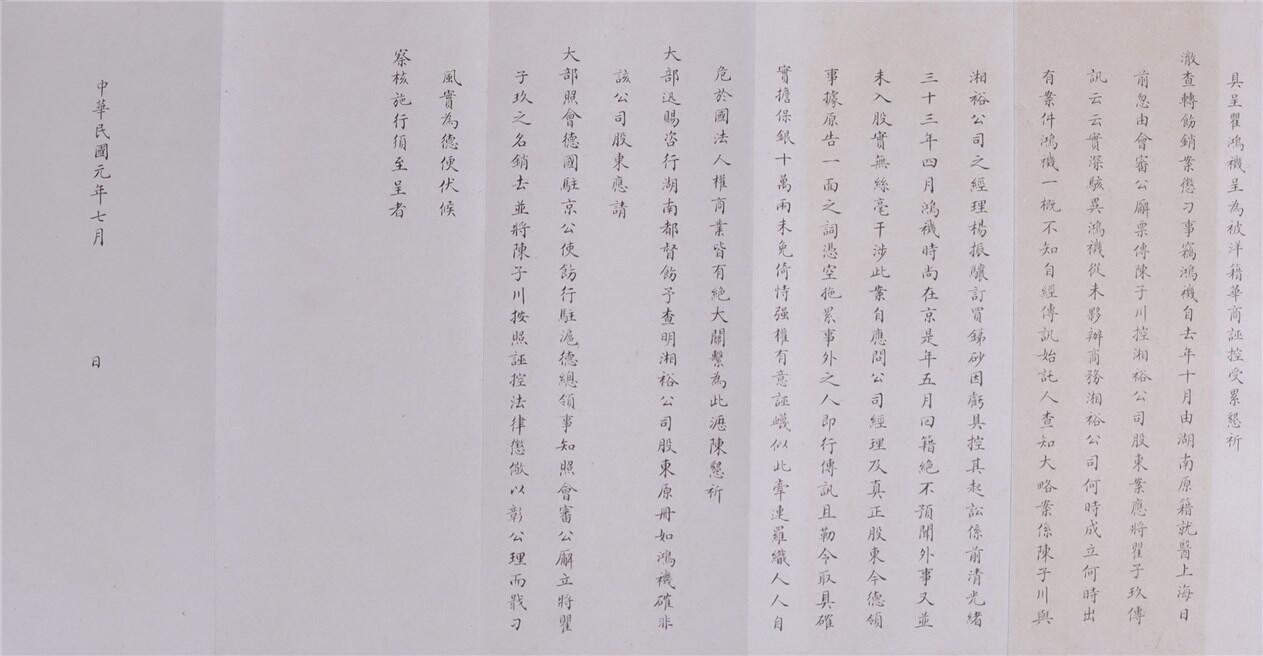 具呈瞿鴻禨呈為被洋籍華商誣控受累懇祈
澈查轉飭銷案懲刁事竊鴻禨自去年十月由湖南原籍就醫上海日
前忽由會審公廨票傳陳子川控湘裕公司股東案應將瞿子玖傳
訊云云實深駭異鴻禨從未夥辦商務湘裕公司何時成立何時出
有案件鴻禨一概不知自經傳訊始託人查知大略案係陳子川與
湘裕公司之經理楊振驤訂買銻砂因虧具控其起訟係前清光緒
三十三年四月鴻禨時尚在京是年五月回籍絕不預聞外事又並
未入股實無絲毫干涉此案自應問公司經理及真正股東今德領
事據原告一面之詞憑空拖累事外之人即行傳訊且勒令取具確
實擔保銀十萬兩未免倚恃强權有意誣衊似此牽連羅織人人自
危於國法人權商業皆有絕大關繫為此瀝陳懇祈
大部迅賜咨行湖南都督飭予查明湘裕公司股東原冊如鴻禨確非
該公司股東應請
大部照會德國駐京公使飭行駐滬德總領事知照會審公廨立將瞿
子玖之名銷去並將陳子川按照誣控法律懲儆以彰公理而戢刁
風實為德便伏候
察核施行須至呈者
中華民國元年七月 日